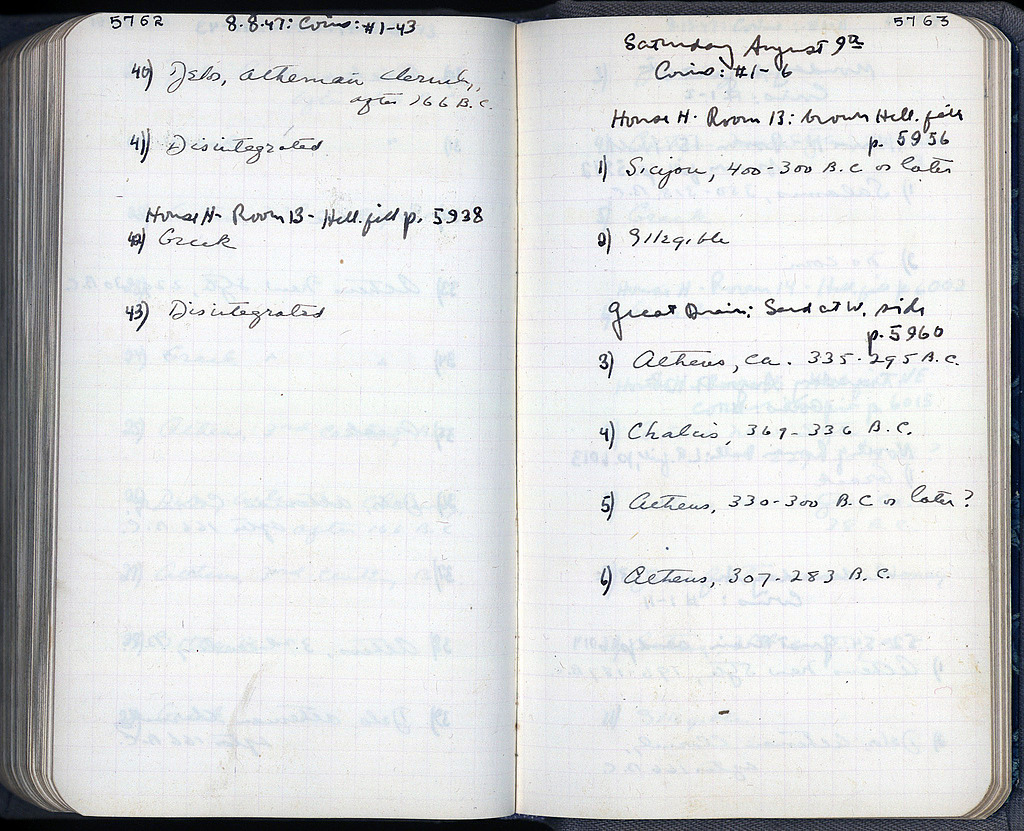 5762
8.8.47: Coins: #1-43
40) Delos, Athenian cleruchy,
after 166 B.C.
41) Disintegrated
House H - Room 13 - Hell. fill p. 5938
42) Greek
43) Disintegrated
5763
Saturday August 9th
Coins: #1-6
House H - Room 13: brown Hell. fill
p. 5956
1) Sicyon, 400-300 B.C. or later
2) Illegible
Great Drain: Sand at W. side
p. 5960
3) Athens, ca. 335-295 B.C.
4) Chalcis, 369-336 B.C.
5) Athens, 330-300 B.C or later?
6) Athens, 307-283 B.C.